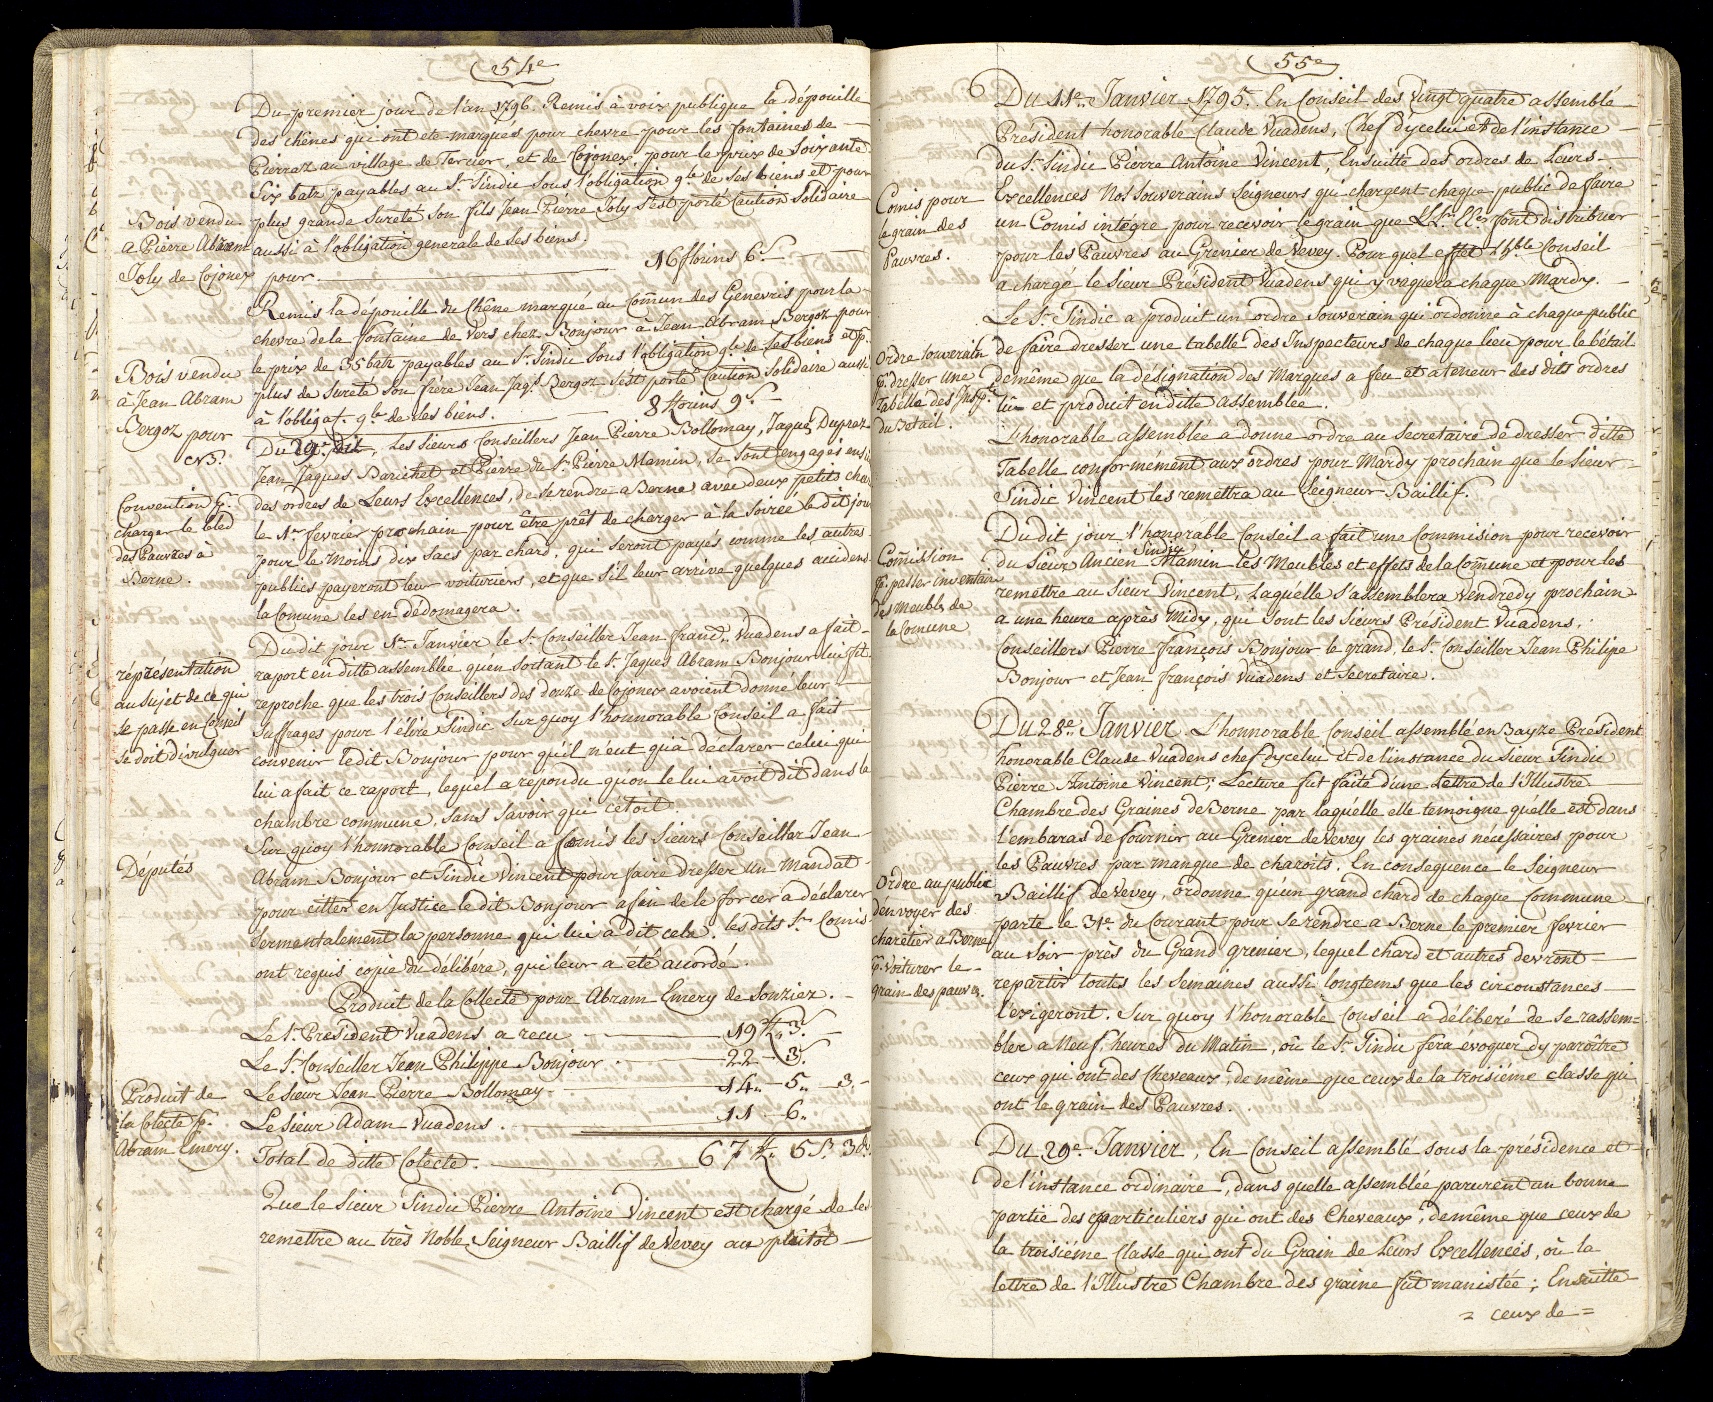 54e
Du premier jour de l'an 1796. Remis à voix publique la dépouille
des chênes qui ont été marqués pour chevre pour les fontaines de
Pierraz au village de Tercier, et de Cojonex, pour le prix de Soixante
Six batz payables au Sr. Sindic sous l'obligation gle. de ses biens et pour
Bois vendu
a Pierre Abram
Joly de Cojonex
plus grande sureté son fils Jean Pierre Joly s'est porté Caution Solidaire
aussi à l'obligation generale de ses biens.
pour 16 florins 6 s.
Remis la dépouille du Chêne marqué au Comun des Genevris pour la
chevre de la fontaine de Vers chez Bonjour à Jean Abram Bergoz pour
Bois vendu
à Jean Abram
Bergoz pour
le prix de 35 batz payables au Sr. Sindic Sous l'obligation gle. de ses biens et p.
plus de sureté son frère Jean Jaqs. Bergoz s'est porté Caution Solidaire aussi
à l'obligat. gle. de ses biens. 8 florins 9 s.
Du 29e. dit, Les Sieurs Conseillers Jean Pierre Bollomay, Jaques Dupraz
Jean Jaques Barichet et Pierre de St. Pierre Mamin, se sont engagés ensui
Convention p.
charger le bled
des Pauvres à
Berne.
des ordres de Leurs Excellences, de se rendre a Berne avec deux petits char
le 1er fevrier prochain pour être prêt de charger à la Soirée le dit jour
pour le moins dix sacs par chard, qui seront payes comme les autres
publics payeront leur voituriers, et que s'il leur arrive quelques accidens
la Comune les en dédomagera.
Du dit jour 1er. Janvier le Sr. Conseiller Jean Franç. Vuadens a fait
représentation
au sujet de ce qui
se passe en Conseil
se doit divulguer
raport en ditte assemblée qu'en sortant le Sr. Jaques Abram Bonjour lui fit
reproche que les trois Conseillers des douze de Cojonex avoient donné leur
suffrages pour l'élire Sindic Sur quoy l'honnorable Conseil a fait
convenir le dit Bonjour pour qu'il n'eut qu'à declarer celui qui
lui a fait ce raport, lequel a répondu qu'on le lui avoit dit dans la
chambre commune, sans savoir qui c'étoit.
Sur quoy l'honnorable Conseil a Comis les Sieurs Conseiller Jean
Députés
Abram Bonjour et Sindic Vincent pour faire dresser un Mandat
pour citter en Justice le dit Bonjour afin de le forcer à déclarer
sermentalement la personne qui lui a dit cela. les dits Srs. Comis
ont requis copie du délibéré, qui leur a été accordé.
Produit de la Collecte pour Abram Emery de Sonziez.
Le Sr. President Vuadens a recu 19 fl. 3 s.
Le Sr. Conseiller Jean Philippe Bonjour. 22 - 3 s.
Le Sieur Jean Pierre Bollomay 14 - 5 - 3.
Le Sieur Adam Vuadens. 11 - 6.
Produit de
la Colecte p.
Abram Emery.
Total de ditte Colecte. 67 fl. 5 s. 3 d.
Que le Sieur Sindic Pierre Antoine Vincent est chargé de les
remettre au très Noble Seigneur Baillif de Vevey au plutôt
55e
Du 11e. Janvier 1795. En Conseil des Vingt quatre assemblé
Président honorable Claude Vuadens, Chef d'ycelui et de l'instance
du Sr. Sindic Pierre Antoine Vincent, Ensuitte des ordres de Leurs
Comis pour
le grain des
Pauvres.
Excellences Nos Souverains Seigneurs qui chargent chaque public de faire
un Comis intègre pour recevoir le grain que LL. EE. font distribuer
pour les Pauvres au Grenier de Vevey. Pour quel effet l'hble Conseil
a chargé le Sieur Président Vuadens qui y vaquera chaque Mardy.
Le Sr. Sindic a produit un ordre Souverain qui ordonne à chaque public
Ordre souverain
p. dresser une
Tabelle des Insp.
du Betail.
de faire dresser une tabelle des Inspecteurs de chaque lieu pour le bétail
de même que la désignation des Marques a feu et a teneur des dits ordres
lû et produit en ditte assemblée.
L'honorable assemblée a donne ordre au Secretaire de dresser ditte
Tabelle conformément aux ordres pour Mardy prochain que le Sieur
Sindic Vincent les remettra au Seigneur Baillif.
Du dit jour l'honorable Conseil a fait une Commision pour recevoir
Commission
p. passer inventaire
des Meubles de
la Comune
Sindic
du Sieur Ancien Mamin les Meubles et effets de la Comune et pour les
remettre au Sieur Vincent, Laquélle s'assemblera Vendredy prochain
a une heure après Midy, qui sont les Sieurs Président Vuadens,
Conseillers Pierre François Bonjour le grand, le Sr. Conseiller Jean Philipe
Bonjour et Jean François Vuadens et Secretaire.
Du 28e. Janvier. L'honnorable Conseil assemblé en Bayze Président
honorable Claude Vuadens chef d'ycelui et de l'instance du Sieur Sindic
Pierre Antoine Vincent; Lecture fut faite d'une Lettre de l'Illustre
Chambre des Graines de Berne par laquélle elle temoigne qu'elle est dans
l'embaras de fournir au Grenier de Vevey les graines nécessaires pour
les Pauvres par manque de charoits. En consequence le Seigneur
Ordre au public
d'envoyer des
charetier a Berne
p. Voiturer le
grain des pauvres.
Baillif de Vevey, ordonne qu'un grand chard de chaque Commune
parte le 31e. du Courant pour se rendre a Berne le premier fevrier
au soir près du Grand grenier, lequel chard et autres devront
repartir toutes les Semaines aussi longtems que les circonstances
l'exigeront. Sur quoy l'honorable Conseil a déliberé de se rassem=
bler a Neuf heures du Matin, où le Sr. Sindic fera evoquer d'y paroître
ceux qui ont des Cheveaux, de même que ceux de la troisiéme classe qui
ont le grain des Pauvres.
Du 29e. Janvier, En Conseil assemblé sous la présidence et
de l'instance ordinaire, dans quelle assemblée parurent un bonne
partie des particuliers qui ont des Cheveaux, de même que ceux de
la troisiéme Classe qui ont du Grain de Leurs Excellences, où la
lettre de l'Illustre Chambre des graine fût manistée; Ensuitte
= ceux de =